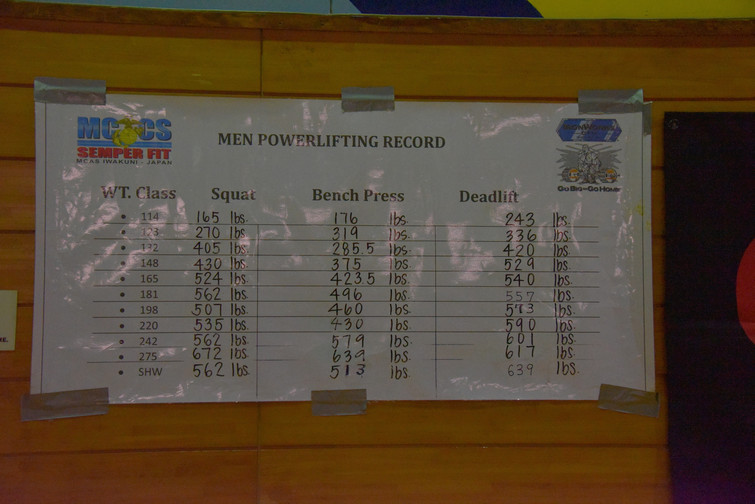 MCCS
SEMPER FIT
MCAS IWAKUNI - JAPAN
MEN POWERLIFTING RECORD
GO BIG-GO HOME
WT. Class Squat Bench Press Deadlift
• 114 165 lbs. 176 lbs. 243 lbs.
• 123 270 lbs. 319 lbs. 336 lbs.
• 132 405 lbs. 285.5 lbs. 420 lbs.
• 148 430 lbs. 375 lbs. 529 lbs.
• 165 524 lbs. 423.5 lbs. 540 lbs.
• 181 562 lbs. 496 lbs. 557 lbs.
• 198 507 lbs. 460 lbs. 573 lbs.
• 220 535 lbs. 430 lbs. 590 lbs.
• 242 562 lbs. 579 lbs. 601 lbs.
• 275 672 lbs. 639 lbs. 617 lbs.
• SHW 562 lbs. 513 lbs. 639 lbs.